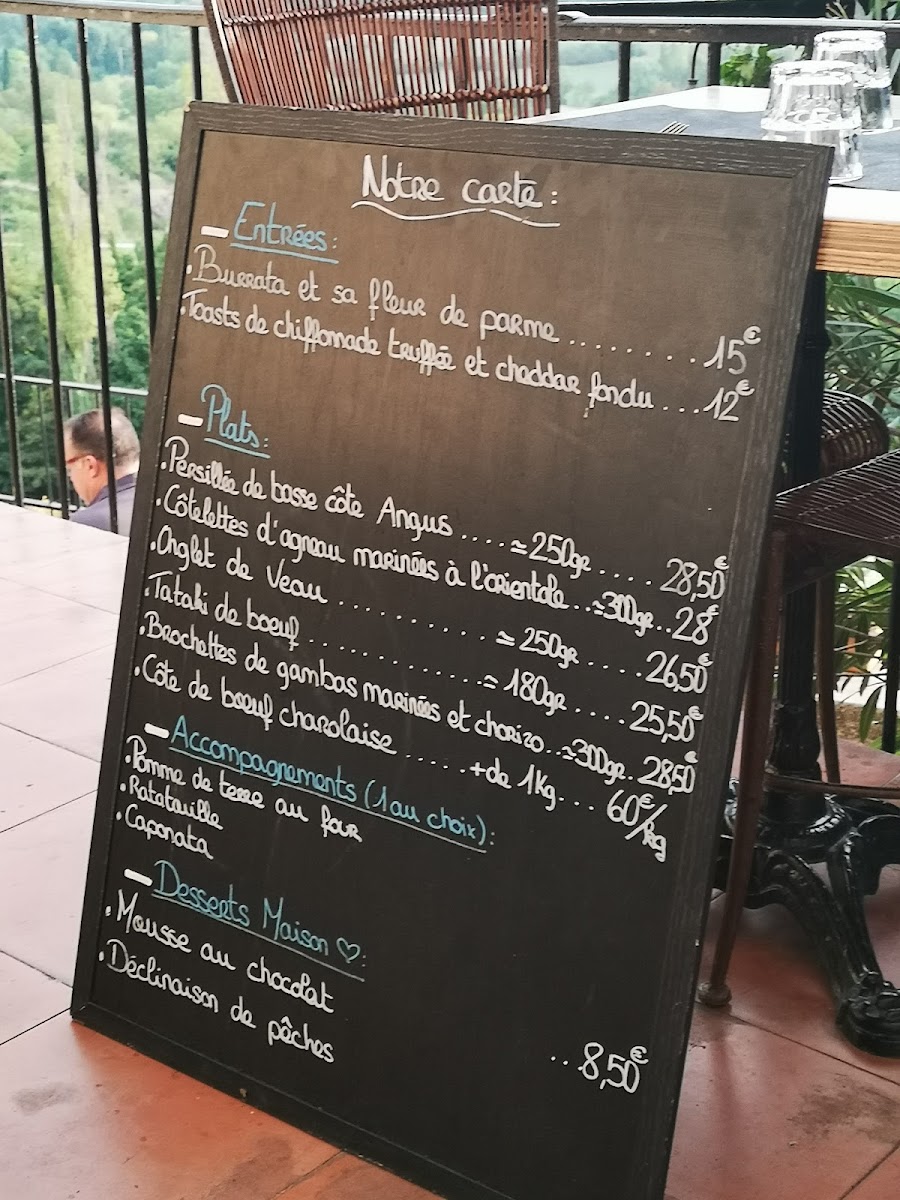 Notre carte :
- Entrées :
• Burrata et sa fleur de parme ........ 15€
• Toasts de chiffonnade truffée et cheddar fondu ... 12€
- Plats :
• Persillée de basse côte Angus .... ≈250gr .... 28,50€
• Côtelettes d'agneau marinées à l'orientale ..≈300gr.. 28€
• Onglet de Veau ............ ≈ 250gr .... 26,50€
• Tataki de boeuf ............ ≈ 180gr ..... 25,50€
• Brochettes de gambas marinées et chorizo ..≈300gr.. 28,50€
• Côte de boeuf charolaise ..... +de 1kg... 60€/kg
- Accompagnements (1 au choix) :
• Pomme de terre au four
• Ratatouille
• Caponata
- Desserts Maison ♡ :
• Mousse au chocolat
• Déclinaison de pêches ... 8,50€